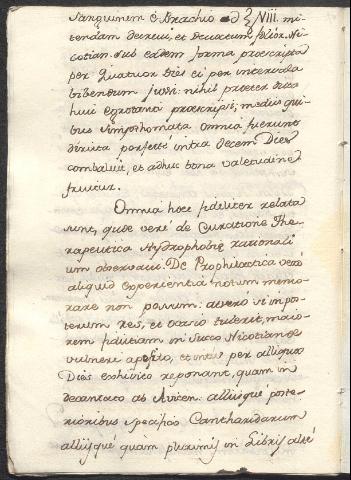 sanguinem é Brachio ad ℥ VIII. mi-
tendam decreui, et Decoctum folior. Ni-
cotian. sub eadem forma praescripta
per quatuor Dies ei per intervala
bibendum jussi: nihil praeter dicta
huic egrotanti praescripsi; mediis qui-
bus simpthomata omnia fuerunt
devicta perfecté intra decem Dies
combaluit, et adhuc bona valetudine
fruitur.
Omnia hoec fideliter relata
sunt, quae veré de Curatione The-
rapeutica Hydrophobię rationali-
um observavi. De Prophilactica veró
aliquid experientia notum memo-
rare non possum: at veró si in pos-
terum res, et casio tulerit, maio-
rem fiditiam in Succo Nicotianae
vulneri aposito, et intus per aliquos
Dies exhivito reponant, quam in
decantato ab Avicen. alliisqué poste-
rioribus specifico Cantharidarum
alliisqué quám plurimis in Libris allé